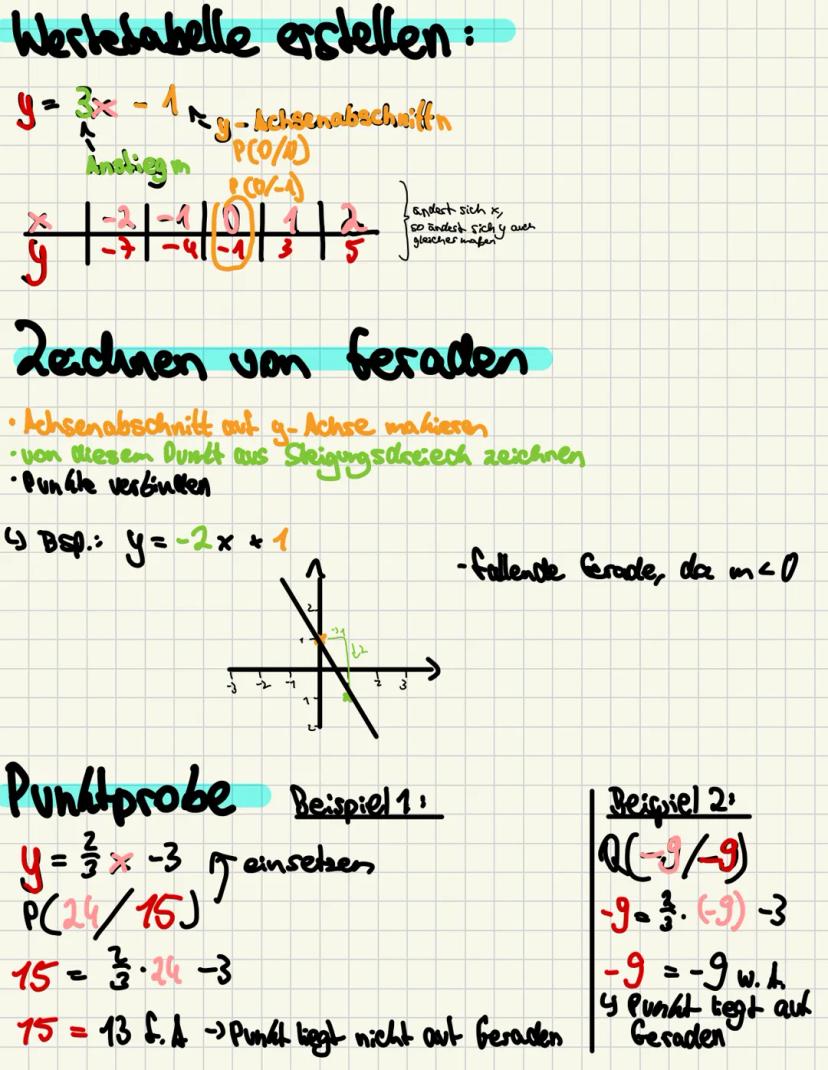 Wertetabelle erstellen:
y = 3x - 1
y-Achsenabschnitt n
Anstieg m
P(0/n)
P(0/-1)
x | -2 | -1 | 0 | 1 | 2
y | -7 | -4 | -1 | 3 | 5
ändert sich x,
so ändert sich y auch
gleichermaßen
Zeichnen von Geraden
• Achsenabschnitt auf y-Achse makieren
• von diesem Punkt aus Steigungsdreieck zeichnen
• Punkte verbinden
↳ Bsp.: y = -2x + 1
- fallende Gerade, da m < 0
2
1
→1
↓2
-3 -2 -1 2 3
1
2
Punktprobe
Beispiel 1:
y = 2/3 x - 3
einsetzen
P(24/15)
15 = 2/3 · 24 - 3
15 = 13 f.A → Punkt liegt nicht auf Geraden
Beispiel 2:
Q(-9/-9)
-9 = 2/3 · (-9) - 3
-9 = -9 w.A.
↳ Punkt liegt auf
Geraden